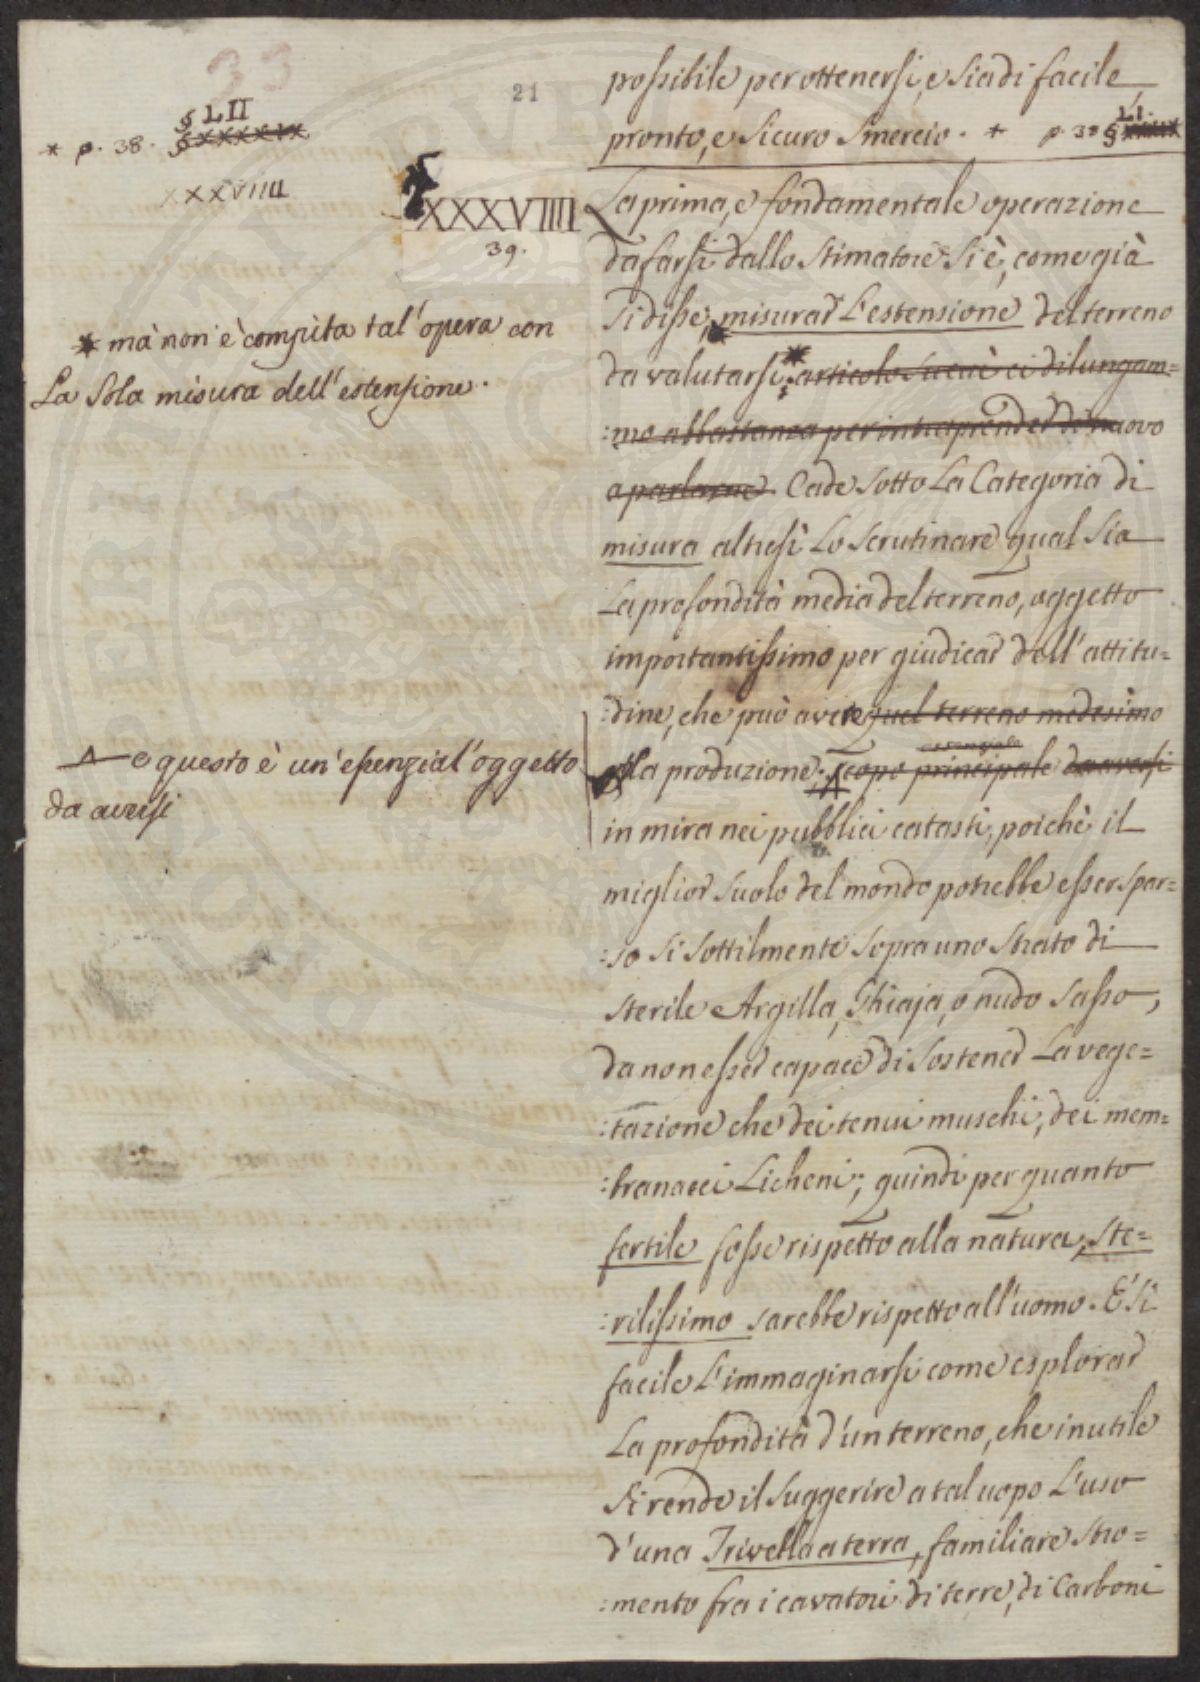 33
21
§ LII
* p. 38. § XXXXIX
XXXVIIII
possibile per ottenersi, e sia di facile,
pronto, e sicuro smercio. * p. 38 § LI.
XXXVIIII
39.
La prima, e fondamentale operazione
da farsi dallo Stimatore si è, come già
si disse, misurar l'estensione del terreno
da valutarsi; * articolo su cui ci dilungam=
:mo abbastanza per intraprender di nuovo
a parlarne. Cade sotto La Categoria di
misura altresì Lo scrutinare qual sia
La profondità media del terreno, oggetto
importantissimo per giudicar dell'attitu=
:dine, che può avere quel terreno medesimo
essenziale
alla produzione; scopo principale da aversi
in mira nei pubblici catasti, poichè il
miglior suolo del mondo potrebbe esser spar=
:so si sottilmente sopra uno strato di
sterile Argilla, Ghiaja, o nudo sasso,
da non esser capace di sostener La vege=
:tazione che dei tenui muschi, dei mem=
:branacei Licheni; quindi per quanto
fertile fosse rispetto alla natura, ste=
:rilissimo sarebbe rispetto all'uomo. È sì
facile L'immaginarsi come esplorar
La profondità d'un terreno, che inutile
si rende il suggerire a tal uopo L'uso
d'una Trivella a terra, familiare stro=
:mento fra i cavatori di terre, di Carboni
* mà non è compita tal'opera con
La sola misura dell'estensione.
e questo è un'essenzial'oggetto
da aversi